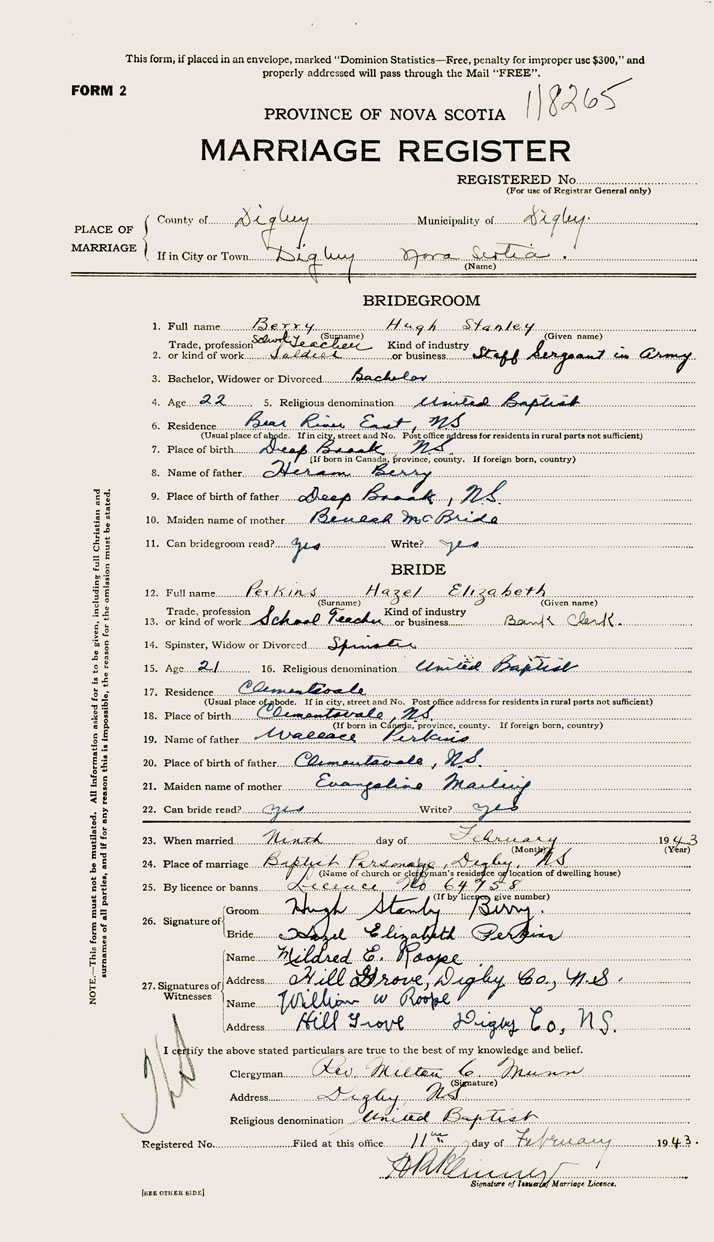 This form, if placed in an envelope, marked "Dominion Statistics—Free, penalty for improper use $300," and
properly addressed will pass through the Mail "FREE".
FORM 2
118265
PROVINCE OF NOVA SCOTIA
MARRIAGE REGISTER
REGISTERED No.
(For use of Registrar General only)
PLACE OF MARRIAGE
County of Digby Municipality of Digby.
If in City or Town Digby Nova Scotia.
(Name)
BRIDEGROOM
1. Full name Berry Hugh Stanley
(Surname) (Given name)
School Teacher
Trade, profession Kind of industry
2. or kind of work Soldier or business Staff Sergeant in Army
3. Bachelor, Widower or Divorced Bachelor
4. Age 22 5. Religious denomination United Baptist
6. Residence Bear River East, NS
(Usual place of abode. If in city, street and No. Post office address for residents in rural parts not sufficient)
7. Place of birth Deep Brook NS.
(If born in Canada, province, county. If foreign born, country)
8. Name of father Heram Berry
9. Place of birth of father Deep Brook, N.S.
10. Maiden name of mother McBride
11. Can bridegroom read? yes Write? yes
BRIDE
12. Full name Perkins Hazel Elizabeth
(Surname) (Given name)
Trade, profession Kind of industry
13. or kind of work School Teacher or business Bank Clerk.
14. Spinster, Widow or Divorced Spinster
15. Age 21 16. Religious denomination United Baptist
17. Residence Clementsvale
(Usual place of abode. If in city, street and No. Post office address for residents in rural parts not sufficient)
18. Place of birth Clementsvale, NS.
(If born in Canada, province, county. If foreign born, country)
19. Name of father Wallace Perkins
20. Place of birth of father Clementsvale, NS.
21. Maiden name of mother Evangeline Mailing
22. Can bride read? yes Write? yes
23. When married Ninth day of February 1943
(Month) (Year)
24. Place of marriage Baptist Parsonage, Digby, NS
(Name of church or clergyman's residence or location of dwelling house)
25. By licence or banns Licence No 64958
(If by licence, give number)
26. Signature of
Groom Hugh Stanley Berry.
Bride Hazel Elizabeth Perkins
27. Signatures of Witnesses
Name Mildred E. Roope
Address Hill Grove, Digby Co., N.S.
Name William W Roope
Address Hill Grove Digby Co, N.S.
I certify the above stated particulars are true to the best of my knowledge and belief.
Clergyman Rev. Milton C. Munn
(Signature)
Address Digby, NS
Religious denomination United Baptist
Registered No. Filed at this office 11th day of February 1943.
Signature of Issuer of Marriage Licence.
[SEE OTHER SIDE]
NOTE.—This form must not be mutilated. All information asked for is to be given, including full Christian and
surnames of all parties, and if for any reason this is impossible, the reason for the omission must be stated.